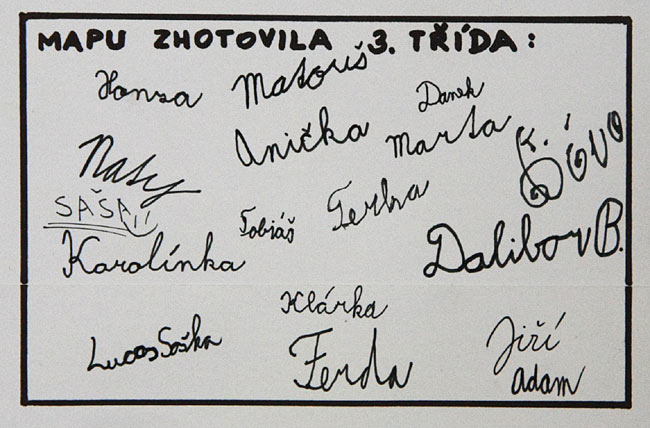 MAPU ZHOTOVILA 3. TŘÍDA:
Honza Matouš Danek
Anička Marta
Naty
SAŠA!!
Tobiáš Terka
Karolínka Dalibor B.
Klárka
Lucas Saška Ferda Jiří
Adam